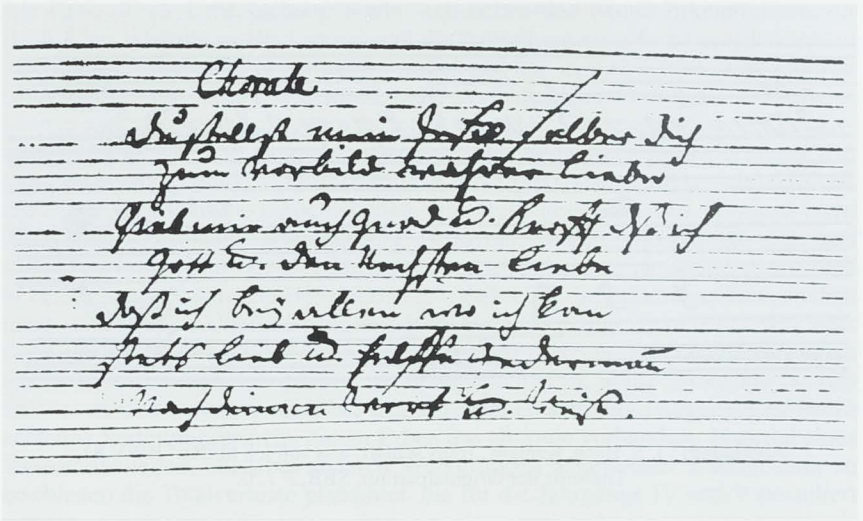 Chorale
du stellst mein Jesu selber dich
zum Vorbild wahrer liebe
Gieb mir auch Gnad u. Krafft dß ich
Gott u. den Nechsten liebe
daß ich bey allen wo ich kan
stets lieb u. helffe iederman̄
Nach deinem Wort u. Weise.